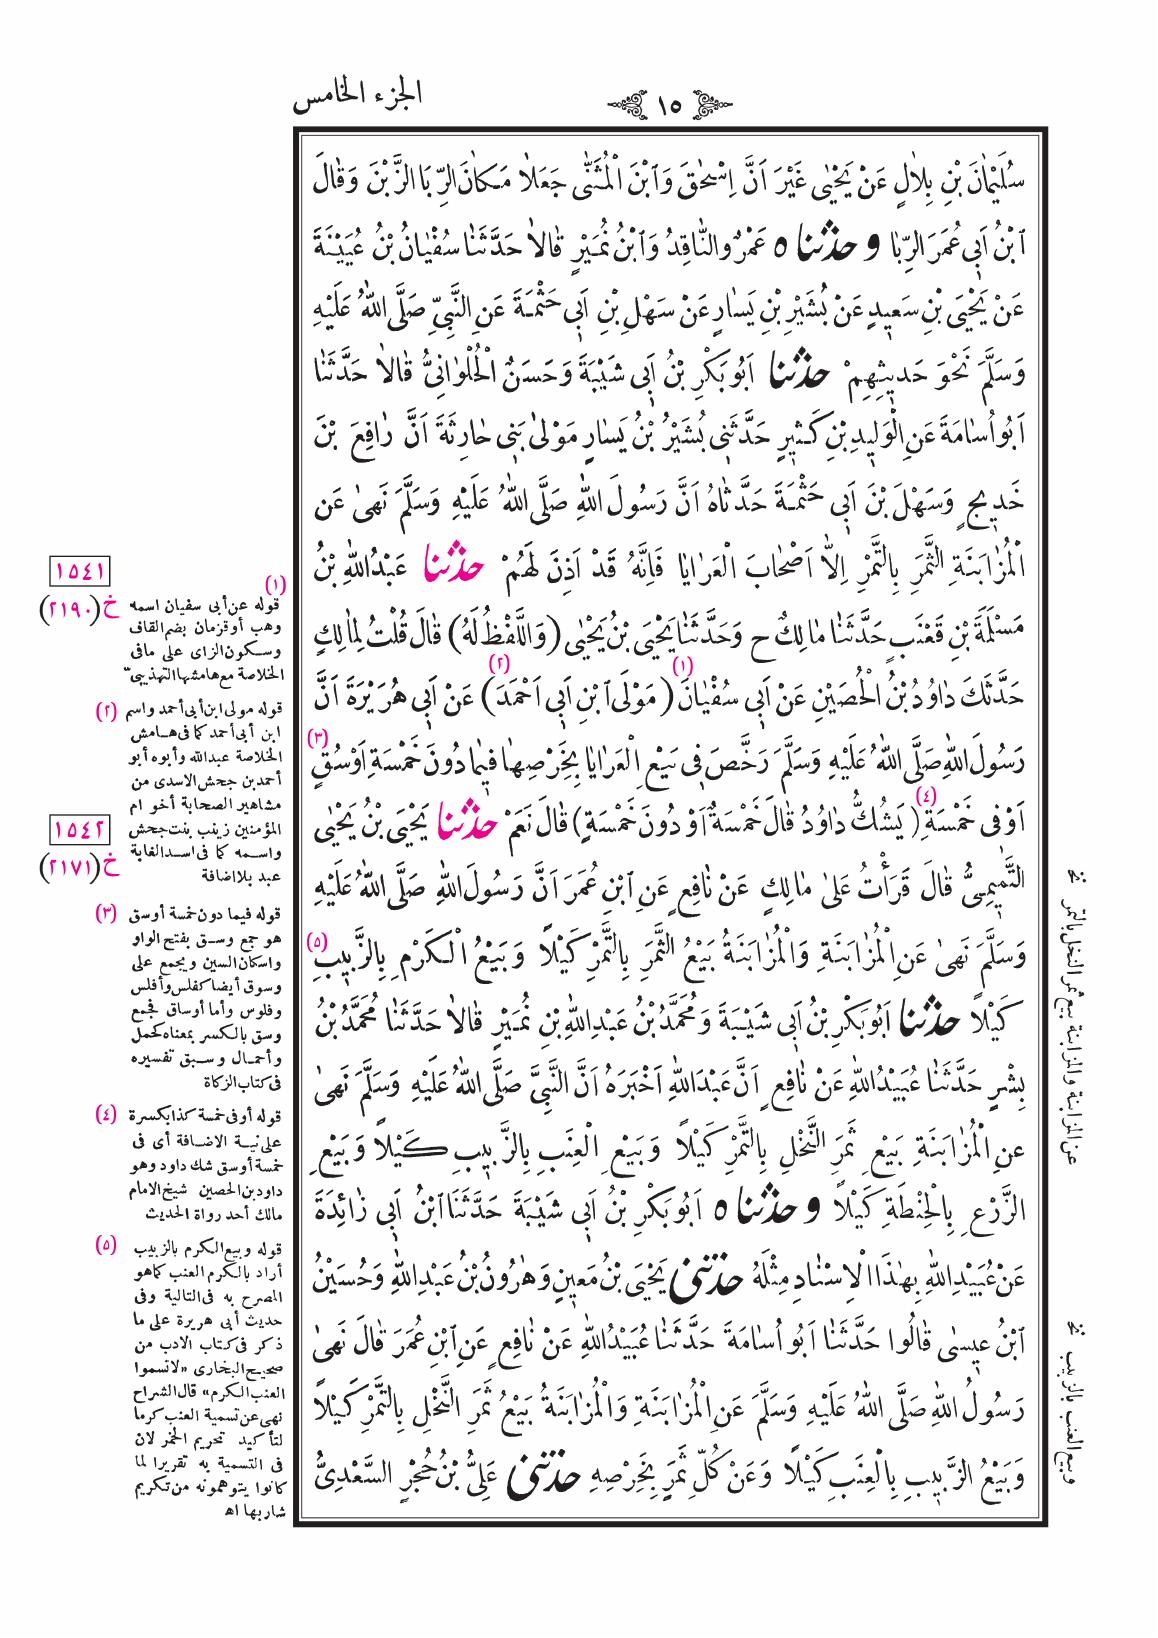 الجزء الخامس
١٥
سُلَيْمَانَ بْنِ بِلَالٍ عَنْ يَحْيَى غَيْرَ اَنَّ اِسْحٰقَ وَابْنَ الْمُثَنّٰى جَعَلَا مَكَانَ الرِّبَا الزَّبْنَ وَقَالَ
ابْنُ اَبِي عُمَرَ الرِّبَا وحدثناه عَمْرٌو النَّاقِدُ وَابْنُ نُمَيْرٍ قَالَا حَدَّثَنَا سُفْيَانُ بْنُ عُيَيْنَةَ
عَنْ يَحْيَى بْنِ سَعِيدٍ عَنْ بُشَيْرِ بْنِ يَسَارٍ عَنْ سَهْلِ بْنِ اَبِي حَثْمَةَ عَنِ النَّبِيِّ صَلَّى اللّٰهُ عَلَيْهِ
وَسَلَّمَ نَحْوَ حَدِيثِهِمْ حدثنا اَبُو بَكْرِ بْنُ اَبِي شَيْبَةَ وَحَسَنٌ الْحُلْوَانِيُّ قَالَا حَدَّثَنَا
اَبُو اُسَامَةَ عَنِ الْوَلِيدِ بْنِ كَثِيرٍ حَدَّثَنِي بُشَيْرُ بْنُ يَسَارٍ مَوْلَى بَنِي حَارِثَةَ اَنَّ رَافِعَ بْنَ
خَدِيجٍ وَسَهْلَ بْنَ اَبِي حَثْمَةَ حَدَّثَاهُ اَنَّ رَسُولَ اللّٰهِ صَلَّى اللّٰهُ عَلَيْهِ وَسَلَّمَ نَهَى عَنِ
الْمُزَابَنَةِ الثَّمَرِ بِالتَّمْرِ اِلَّا اَصْحَابَ الْعَرَايَا فَاِنَّهُ قَدْ اَذِنَ لَهُمْ حدثنا عَبْدُ اللّٰهِ بْنُ
مَسْلَمَةَ بْنِ قَعْنَبٍ حَدَّثَنَا مَالِكٌ ح وَحَدَّثَنَا يَحْيَى بْنُ يَحْيَى (وَاللَّفْظُ لَهُ) قَالَ قُلْتُ لِمَالِكٍ
حَدَّثَكَ دَاوُدُ بْنُ الْحُصَيْنِ عَنْ اَبِي سُفْيَانَ (١) (مَوْلَى ابْنِ اَبِي اَحْمَدَ) (٢) عَنْ اَبِي هُرَيْرَةَ اَنَّ
رَسُولَ اللّٰهِ صَلَّى اللّٰهُ عَلَيْهِ وَسَلَّمَ رَخَّصَ فِي بَيْعِ الْعَرَايَا بِخَرْصِهَا فِيمَا دُونَ خَمْسَةِ اَوْسُقٍ (٣)
اَوْ فِي خَمْسَةِ (٤) (يَشُكُّ دَاوُدُ قَالَ خَمْسَةٌ اَوْ دُونَ خَمْسَةٍ) قَالَ نَعَمْ حدثنا يَحْيَى بْنُ يَحْيَى
التَّمِيمِيُّ قَالَ قَرَأْتُ عَلَى مَالِكٍ عَنْ نَافِعٍ عَنِ ابْنِ عُمَرَ اَنَّ رَسُولَ اللّٰهِ صَلَّى اللّٰهُ عَلَيْهِ
وَسَلَّمَ نَهَى عَنِ الْمُزَابَنَةِ وَالْمُزَابَنَةُ بَيْعُ الثَّمَرِ بِالتَّمْرِ كَيْلًا وَبَيْعُ الْكَرْمِ بِالزَّبِيبِ (٥)
كَيْلًا حدثنا اَبُو بَكْرِ بْنُ اَبِي شَيْبَةَ وَمُحَمَّدُ بْنُ عَبْدِ اللّٰهِ بْنِ نُمَيْرٍ قَالَا حَدَّثَنَا مُحَمَّدُ بْنُ
بِشْرٍ حَدَّثَنَا عُبَيْدُ اللّٰهِ عَنْ نَافِعٍ اَنَّ عَبْدَ اللّٰهِ اَخْبَرَهُ اَنَّ النَّبِيَّ صَلَّى اللّٰهُ عَلَيْهِ وَسَلَّمَ نَهَى
عَنِ الْمُزَابَنَةِ بَيْعِ ثَمَرِ النَّخْلِ بِالتَّمْرِ كَيْلًا وَبَيْعِ الْعِنَبِ بِالزَّبِيبِ كَيْلًا وَبَيْعِ
الزَّرْعِ بِالْحِنْطَةِ كَيْلًا وحدثناه اَبُو بَكْرِ بْنُ اَبِي شَيْبَةَ حَدَّثَنَا ابْنُ اَبِي زَائِدَةَ
عَنْ عُبَيْدِ اللّٰهِ بِهٰذَا الْاِسْنَادِ مِثْلَهُ حدثني يَحْيَى بْنُ مَعِينٍ وَهٰرُونُ بْنُ عَبْدِ اللّٰهِ وَحُسَيْنُ
ابْنُ عِيسَى قَالُوا حَدَّثَنَا اَبُو اُسَامَةَ حَدَّثَنَا عُبَيْدُ اللّٰهِ عَنْ نَافِعٍ عَنِ ابْنِ عُمَرَ قَالَ نَهَى
رَسُولُ اللّٰهِ صَلَّى اللّٰهُ عَلَيْهِ وَسَلَّمَ عَنِ الْمُزَابَنَةِ وَالْمُزَابَنَةُ بَيْعُ ثَمَرِ النَّخْلِ بِالتَّمْرِ كَيْلًا
وَبَيْعُ الزَّبِيبِ بِالْعِنَبِ كَيْلًا وَعَنْ كُلِّ ثَمَرٍ بِخَرْصِهِ حدثني عَلِيُّ بْنُ حُجْرٍ السَّعْدِيُّ
١٥٤١
خ (٢١٩٠)
١٥٤٢
خ (٢١٧١)
(١)
قوله عن أبى سفيان اسمه
وهب أو قزمان بضم القاف
وسكون الزاى على مافى
الخلاصة مع هامشها التهذيبى
(٢) قوله مولى ابن أبى أحمد واسم
ابن أبى أحمد كما فى هامش
الخلاصة عبدالله وأبوه أبو
أحمد بن جحش الاسدى من
مشاهير الصحابة أخو ام
المؤمنين زينب بنت جحش
واسمه كما فى اسد الغابة
عبد بلا اضافة
(٣) قوله فيما دون خمسة أوسق
هو جمع وسق بفتح الواو
واسكان السين ويجمع على
وسوق أيضا كفلس وأفلس
وفلوس وأما أوساق فجمع
وسق بالكسر بمعناه كحمل
وأحمال وسبق تفسيره
فى كتاب الزكاة
(٤) قوله أو فى خمسة كذا بكسرة
على نية الاضافة أى فى
خمسة أوسق شك داود وهو
داود بن الحصين شيخ الامام
مالك أحد رواة الحديث
(٥) قوله وبيع الكرم بالزبيب
أراد بالكرم العنب كما هو
المصرح به فى التالية وفى
حديث أبى هريرة على ما
ذكر فى كتاب الادب من
صحيح البخارى «لاتسموا
العنب الكرم» قال الشراح
نهى عن تسمية العنب كرما
لتأكيد تحريم الخمر لان
فى التسمية به تقريرا لما
كانوا يتوهمونه من تكريم
شاربها اه
نخ عن المزابنة والمزابنة بيع ثمر النخل بالتمر
نخ وبيع العنب بالزبيب